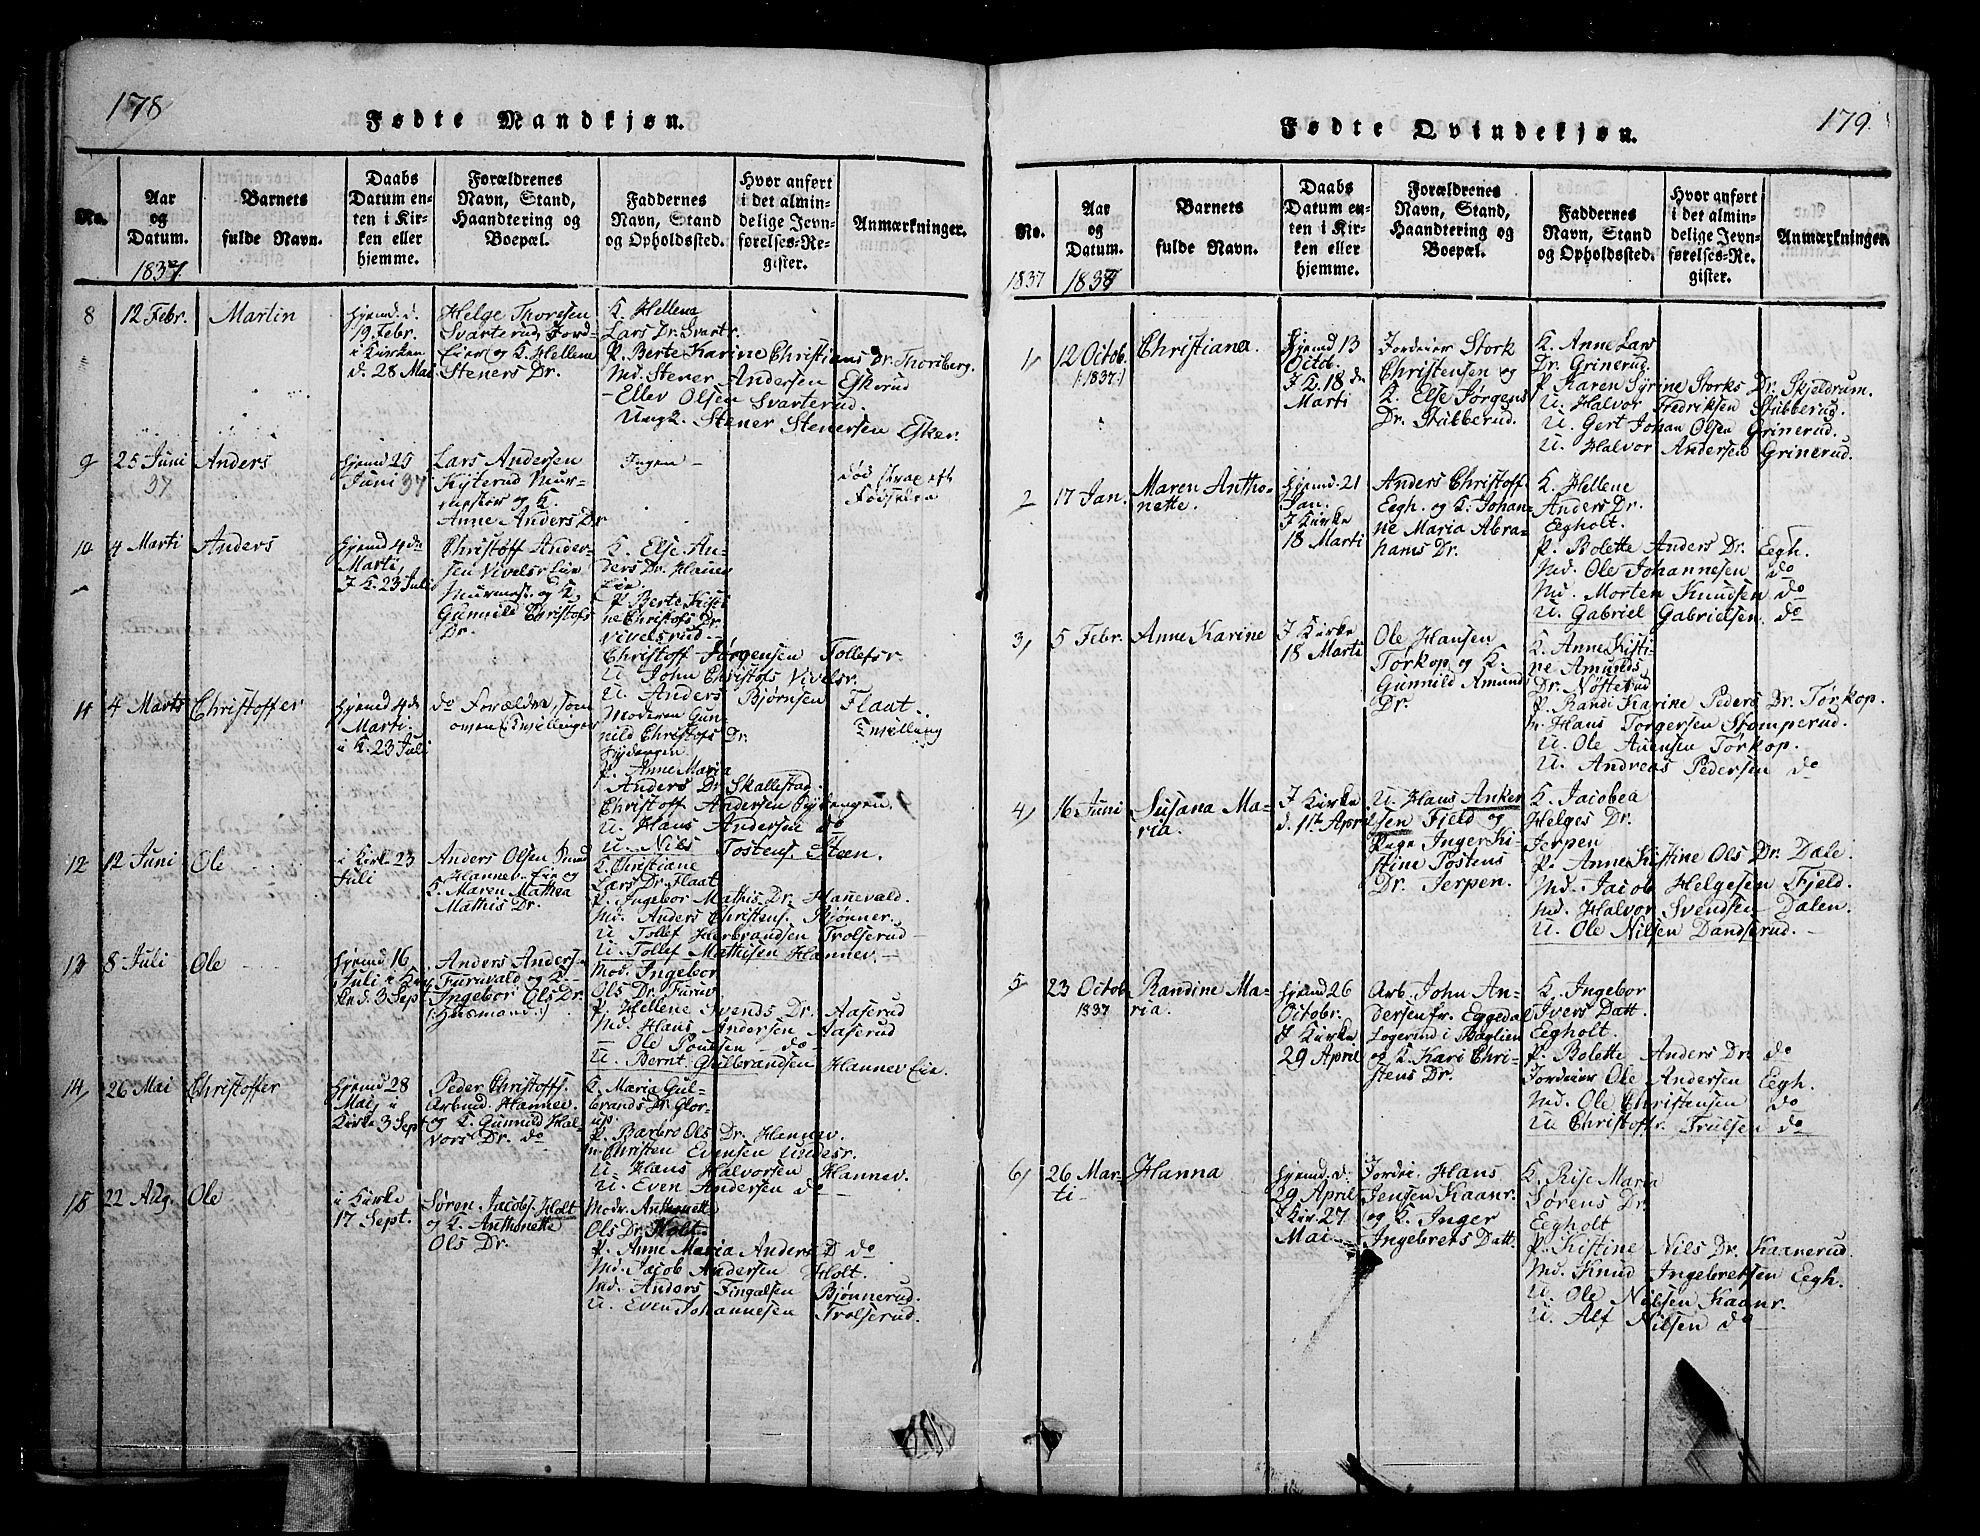 178
Fødte Mandkjøn.
No.
Aar
og
Datum.
1837
Barnets
fulde Navn.
Daabs
Datum en-
ten i Kir-
ken eller
hjemme.
Forældrenes
Navn, Stand,
Haandtering og
Boepæl.
Faddernes
Navn, Stand
og Opholdssted.
Hvor anført
i det almin-
delige Jevn-
førelses-Re-
gister.
Anmærkninger.
8
12 Febr.
Martin
hjemd. d.
19 Febr.
i Kirken
d. 28 Mai
Helge Thoresen
Svarterud, Jord-
Eier og K. Hellene
Steners Dr.
K. Hellena
Lars Dr. Svartr.
P. Berte Karine Christians Dr. Thorsberg.
Md. Stener Andersen Eskerud
- Ellev Olsen Svarterud.
Ungk. Stener Stenersen Esker.
9
25 Juni
37
Anders
hjemd 25
Juni 37
Lars Andersen
Kjiterud Mur-
mester og K.
Anne Anders Dr
Ingen -
død strax eft
Fødselen
10
4 Marti
Anders
hjemd 4 de
Marti,
I K. 23 Juli
Christoff Ander-
sen Vivelsr Eie
Murmest. og K.
Gunnild Christofs
Dr.
K. Else An-
ders Dr. Hannev
Eie.
P. Berte Kisti
ne Christofs Dr.
Vivelsrud.
Christoff Jørgensen Tollefsr.
U John Christofs Vivelsr.
U. Anders Bjørnsen Flaat.
11
4 Marts
Christoffer
hjemd 4 de
Marti
i K. 23 Juli
do Forældre, som
oven (Tvillinger
Moderen Gun
nild Christofs Dr.
P. Anne Maria
Anders Dr Skallestad
Christoff Andersen
U. Hans Andersen do
U. Nils Tostens. Steen.
Tvilling
12
12 Juni
Ole
i Kirk 23
Juli
Anders Olsen
Hanneb. Eie og
K. Maren Mathea
Mathis Dr.
K. Christiane
Lars Dr. Flaat
P. Ingebor Mathis Dr. Hanevald.
Md. Anders Christens. Bjønner.
U Tollef Herbrandsen Trolserud
U. Tollef Mathisen Hannev.
13
8 Juli
Ole
hjemd. 16
Juli i Kir
ke d. 3 Sept.
Anders Anders-
Furuvald og K-
Ingebor Ols Dr.
(:Husmand:)
Mod. Ingebor
Ols Dr. Furuv
P. Hellene Svends Dr. Aaserud
Md. Hans Andersen Aaserud
- Ole Poulsen - do
U. Bernt Gulbrandsen Hannev Eie.
14
26 Mai
Christoffer
hjemd 28
Mai, i
Kirke 3 Sept
Peder Christoffs.
Arbmd. Hannev.
og K. Gunnild Hal-
vors Dr. do
K. Maria Gul-
brands Dr Glor-
up
P. Barbro Ols Dr. Hannev.
m. Christen Evensen
U. Hans Halvorsen Hannev.
U. Even Andersen do
15
22 Aug.
Ole
i Kirke
17 Sept.
Søren Jacobs. Holt
og K. Anthonette
Ols Dr.
Modr. Anthonette
Ols Dr. Holt
P. Anne Maria Anders D do
Md. Jacob Andersen Holt.
Md. Anders Fingalsen Bjønnerud.
U. Even Johannesen Trolserud.
179
Fødte Qvindekjøn.
No.
1837
Aar
og
Datum.
1837
Barnets
fulde Navn.
Daabs
Datum en-
ten i Kir-
ken eller
hjemme.
Forældrenes
Navn, Stand,
Haandtering og
Boepæl.
Faddernes
Navn, Stand
og Opholdssted.
Hvor anført
i det almin-
delige Jevn-
førelses-Re-
gister.
Anmærkninger
1
12 Octob.
(:1837:)
Christiana.
hjemd 13
Octob.
I K. 18 de
Marti
Jordeier Stork
Christensen og
K. Else Jørgens
Dr. Stubberud.
K. Anne Lars
Dr. Grinerud.
P. Karen Syrine Storks Dr. Skjeldrum.
U. Halvor Fredriksen Stubberud.
U. Gert Johan Olsen Grinerud.
U. Halvor Andersen Grinerud.
2
17 Jan.
Maren Antho-
nette.
hjemd. 21
Jan.
I Kirke
18 Marti
Anders Christoff.
Eegh. og K. Johan-
ne Maria Abra-
hams Dr.
K. Hellene
Anders Dr.
Eegholt.
P. Bolette Anders Dr. Eegh.
Md. Ole Johannesen do
Md. Morten Knudsen do
U. Gabriel Gabrielsen. do
3
5 Febr.
Anne Karine
I Kirke
18 Marti
Ole Hansen
Torkop og K.
Gunnild Amunds
Dr
K. Anne Kisti-
ne Amunds
Dr. Nøsterud
P. Randi Karine Peders Dr. Torkop.
m. Hans Torgersen Stomperud.
U. Ole Auensen Torkop.
U. Andreas Pedersen do
4
16 Juni
Susana Ma-
ria.
I Kirke
d. 11te April
U. Hans Anker
sen Fjeld og
Pige Inger Ki-
stine Tostens
Dr. Jerpen.
K. Jacobea
Helges Dr.
Jerpen
P. Anne Kistine Ols Dr. Dale.
Md. Jacob Helgesen Fjeld.
Md. Halvor Svendsen Dalen.
U. Ole Nilsen Dandserud.
5
23 Octob
1837
Randine Ma-
ria.
hjemd 26
Octobr.
I Kirke
29 April
Arb. John An-
dersen fr. Eggedal
Logerind i Baglien
og K. Kari Chri-
stens Dr.
K. Ingebor
Ivers Datt.
Eegholt.
P. Bolette Anders Dr. do
Jordeier Ole Andersen Eegh.
Md. Ole Christensen do
U Christoffr. Trulsen do
6
26 Mar-
ti
Hanna
hjemd. d.
29 April
I Kir. 27
Mai
Jordei. Hans
Jensen Kaanr.
og K. Inger
Ingebrets Datt.
K. Rise Maria
Sørens Dr.
Eegholt
P. Kistine Nils Dr. Kaanerud.
Md. Knud Ingebretsen Eegh.
U. Ole Nilsen Kaanr.
U. Alf Nilsen do